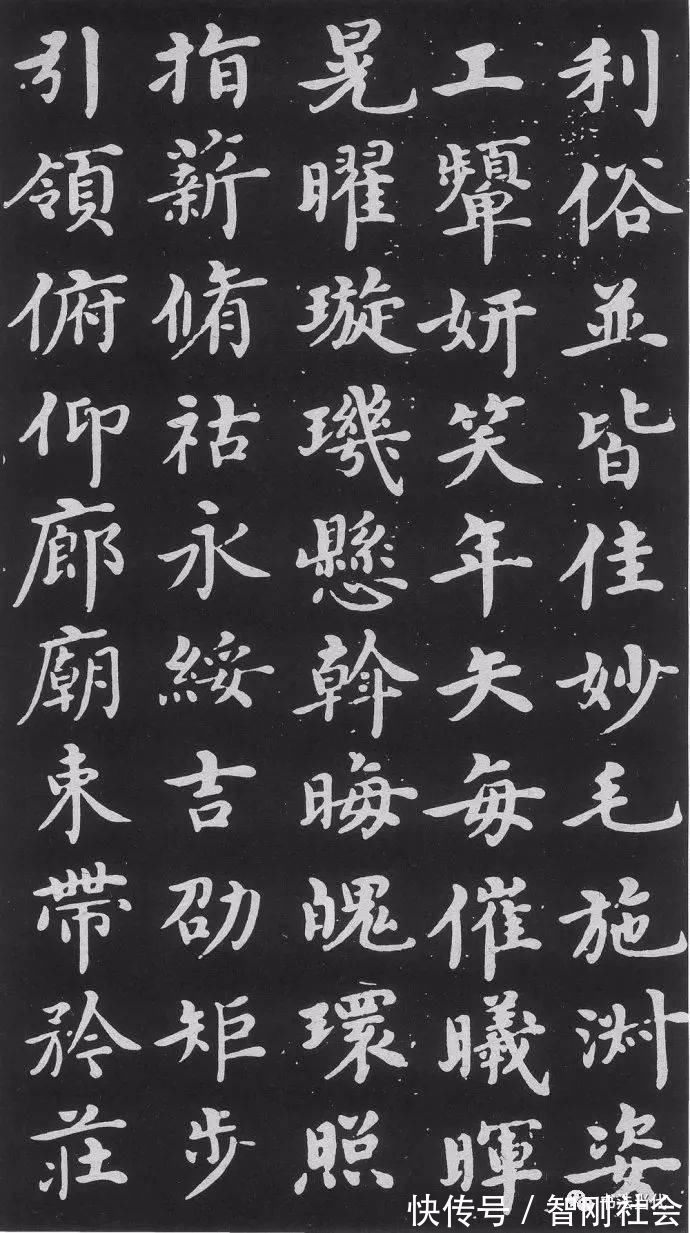 利俗並皆佳妙毛施淑姿
工顰妍笑年矢每催曦暉
晃曜璇璣懸斡晦魄環照
指薪脩祜永綏吉劭矩步
引領俯仰廊廟束帶矜莊
书法当代
快传号／智刚社会